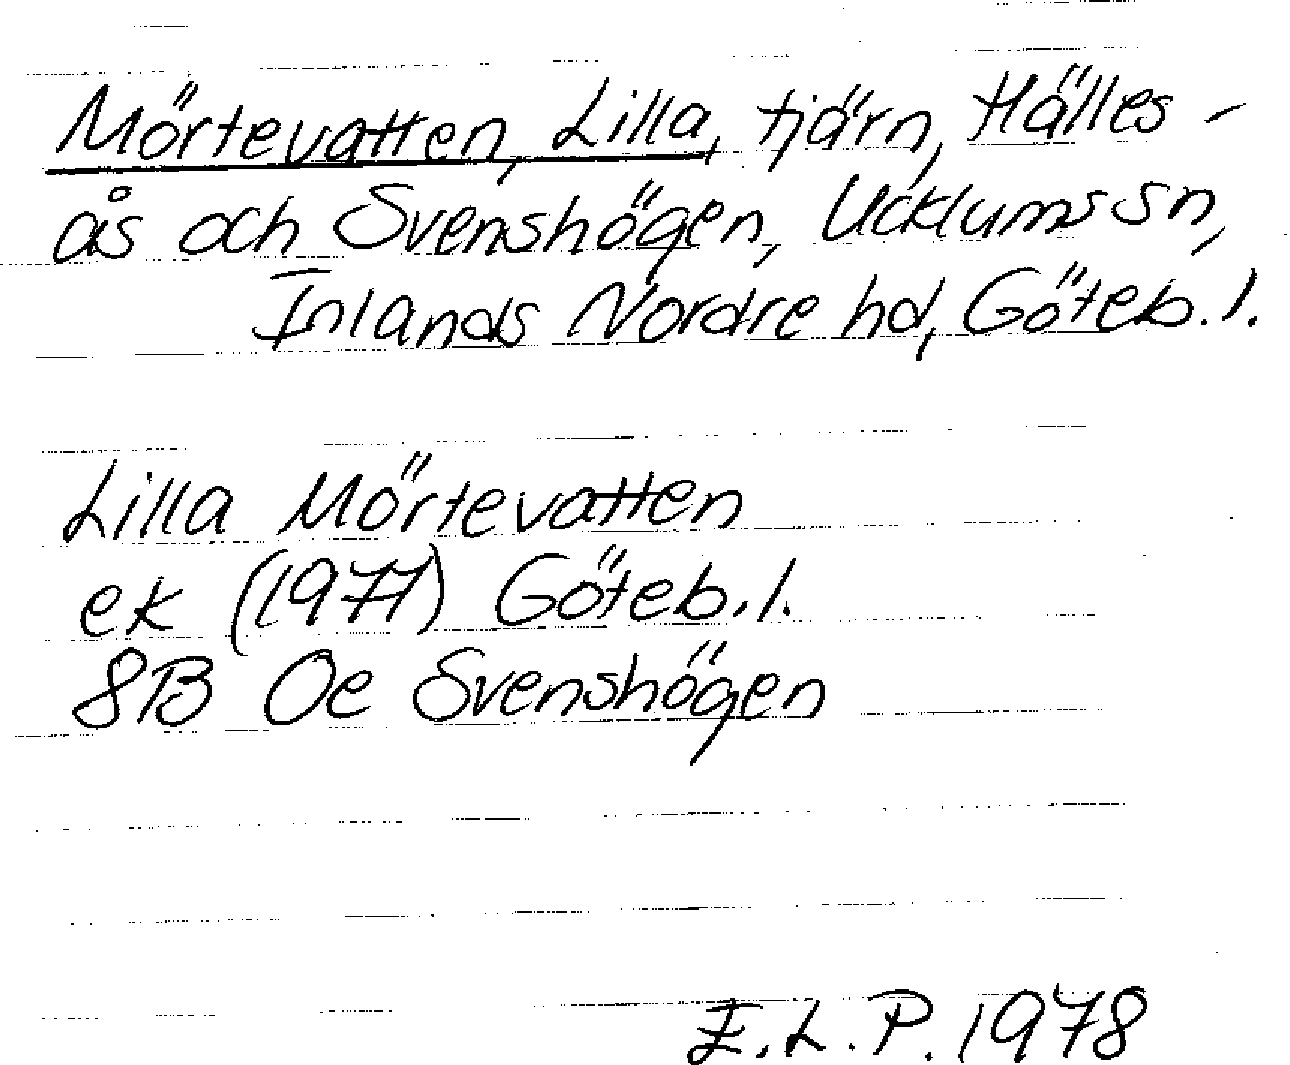 Mörtevatten, Lilla, tjärn, Hälles-
ås och Svenshögen, Ucklums sn,
Inlands Nordre hd, Göteb. l.
Lilla Mörtevatten
ek (1977) Göteb. l.
8B Oe Svenshögen
E. L. P. 1978